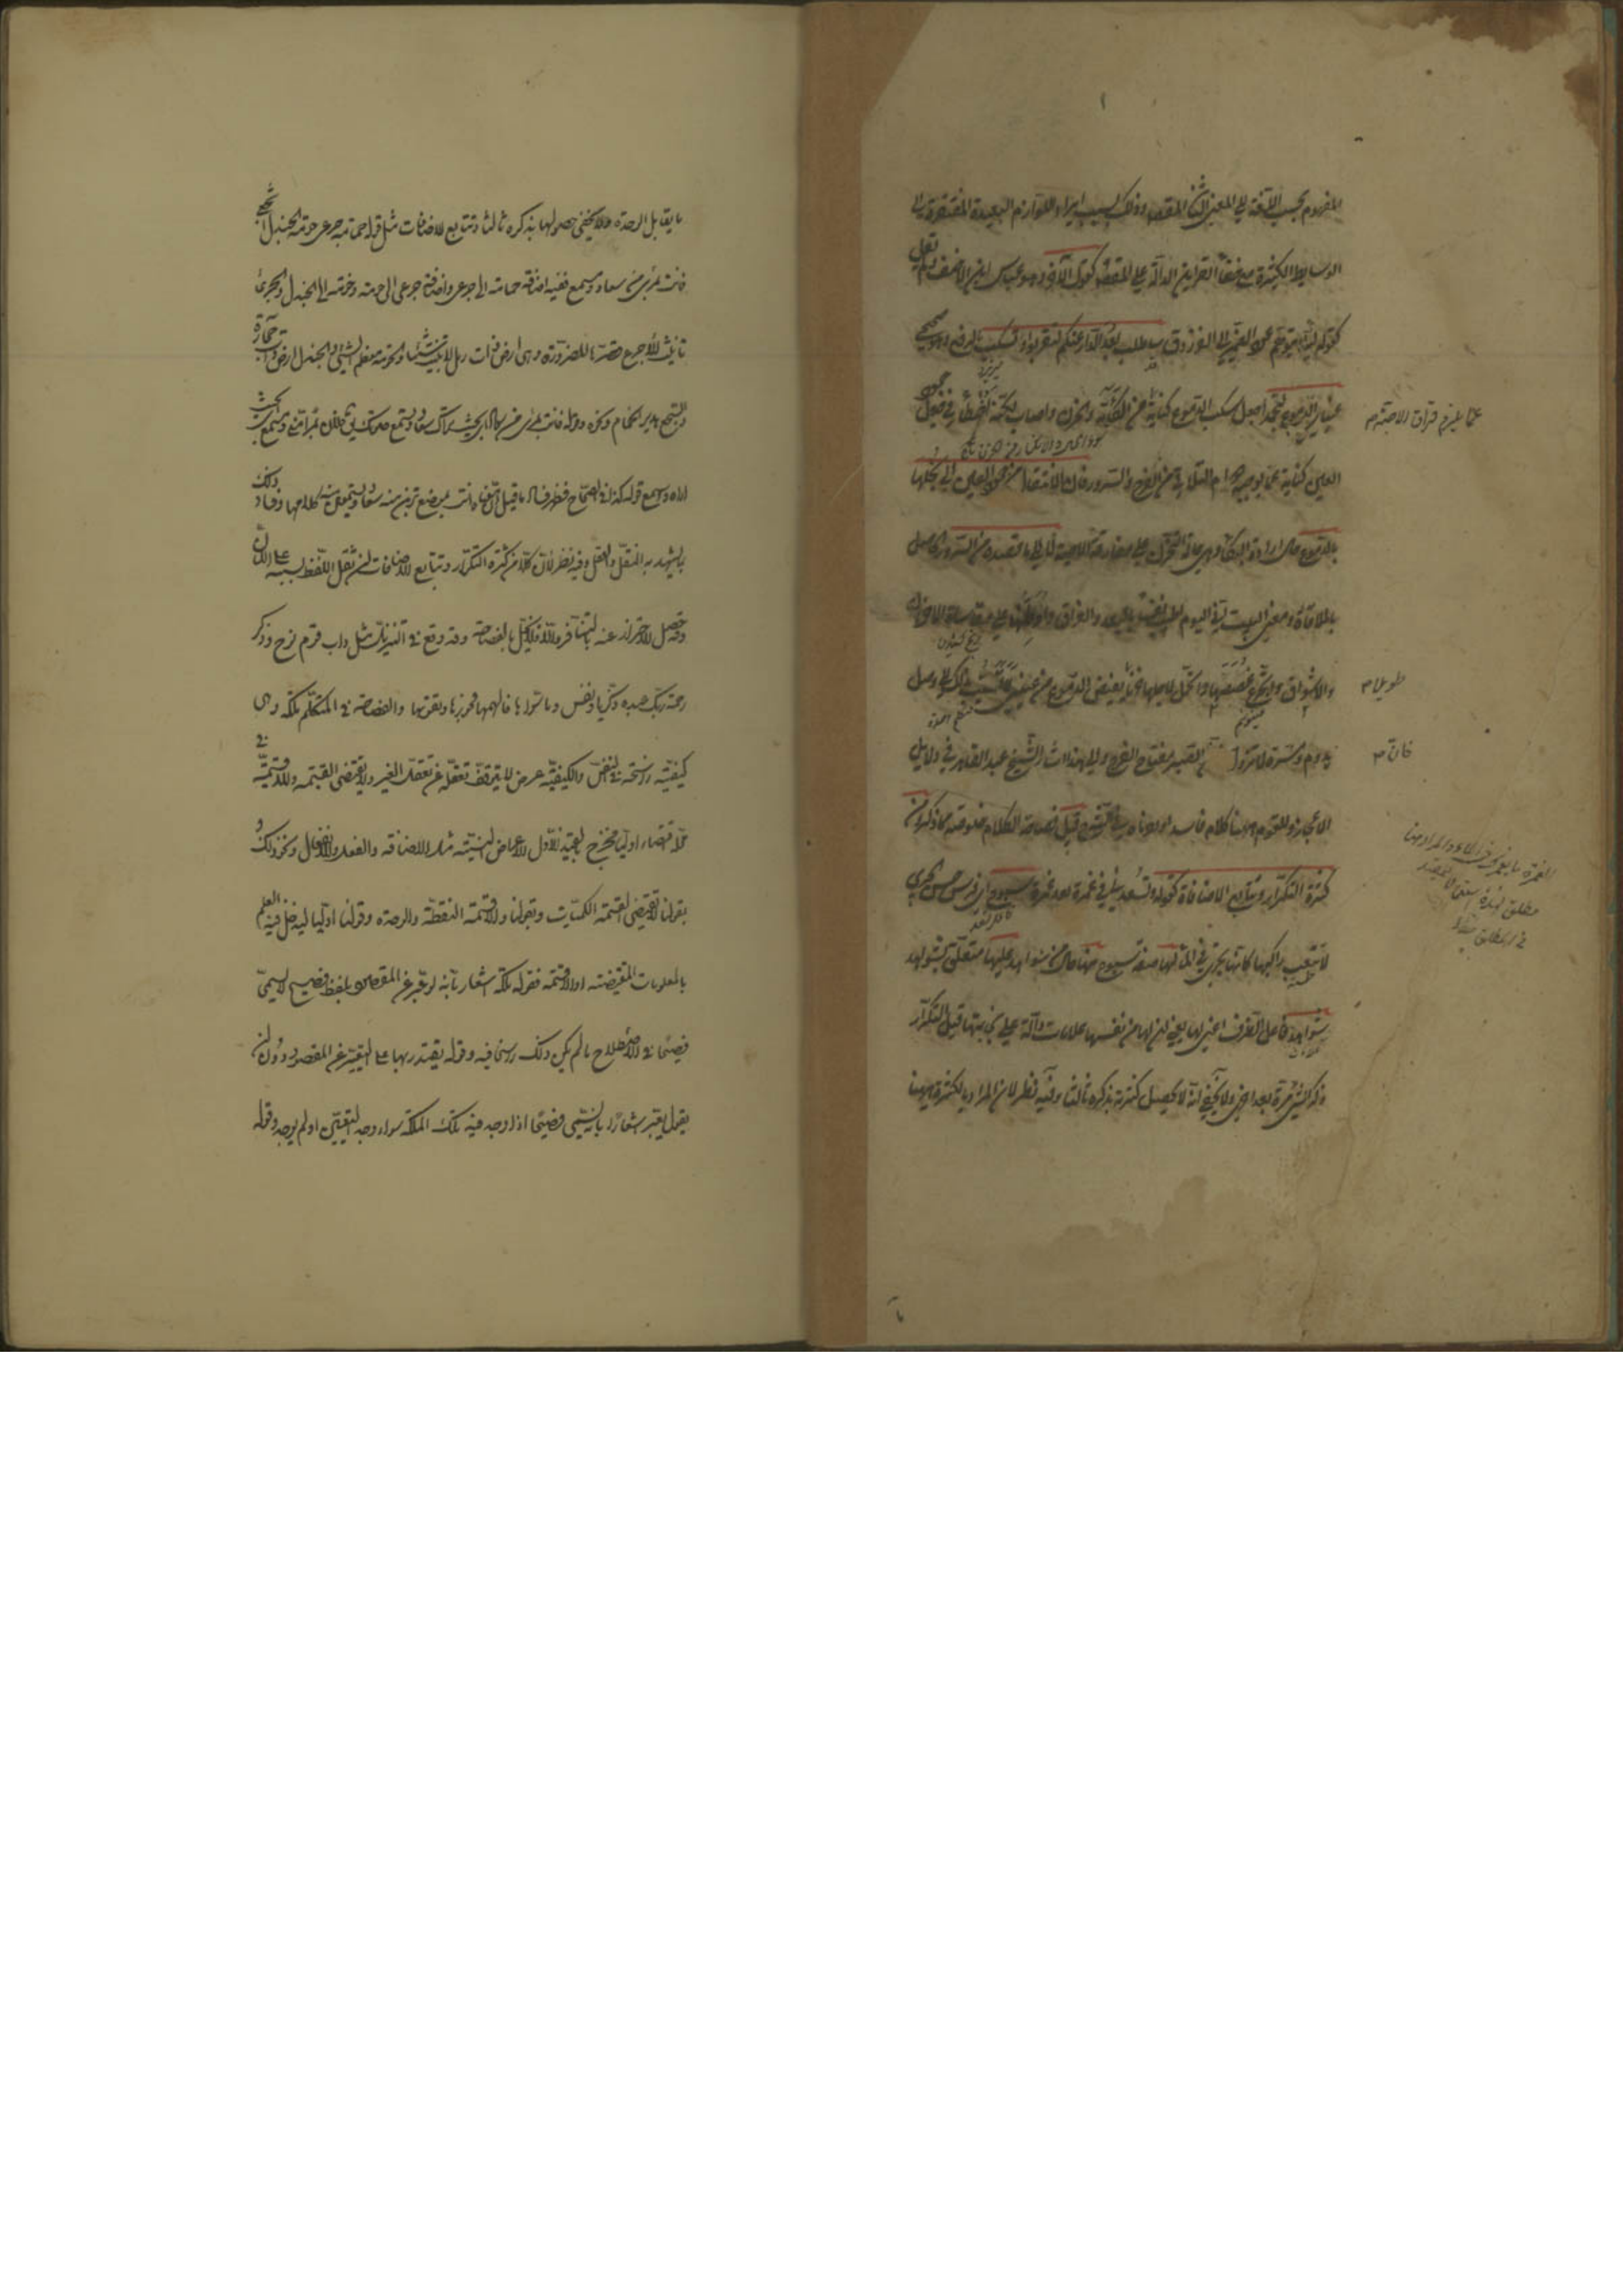 المفهوم بحسب اللغة الى المعنى الثانى المقصود وذلك لسبب ايراد اللوازم البعيدة المفتقرة الى
الوسايط الكثيرة مع خفاء القراين الدالة على المقصود كقول الآخر وهو عباس ابن الاحنف ولم يقل
كقوله لئلا يتوهم عود الضمير الى الفرزدق ساطلب بعد الدار عنكم لتقربوا وتسكب بالرفع وهو الصحيح
عيناى الدموع لتجمدا جعل سكب الدموع كناية عن الكآبة والحزن واصاب لكنه اخطأ فى جعل جمود
العين كناية عما يوجبه دوام التلاقى من الفرح والسرور فان الانتقال من جمود العين الى بخلها
بالدموع حال ارادة البكاء وهى حالة الحزن على مفارقة الاحبة لا الى ما قصده من السرور الحاصل
بالملاقاة ومعنى البيت انى اليوم اطيب نفسا بالبعد والفراق واوطنها على مقاساة الاحزان
والاشواق واتجرع غصصها واتحمل لاجلها حزنا يفيض الدموع من عينى لاتسبب بذلك الى وصل
يدوم ومسرة لا تزول الصبر مفتاح الفرج والى هذا اشار الشيخ عبد القاهر فى دلايل
الاعجاز وللقوم ههنا كلام فاسد اوردناه فى الشرح قيل فصاحة الكلام خلوصه مما ذكر ومن
كثرة التكرار وتتابع الاضافات كقوله وتسعدنى فى غمرة بعد غمرة سبوح اى فرس حسن الجرى
لا تتعب راكبها كانها تجرى فى الماء لها صفة سبوح منها حال من شواهد عليها متعلق بشواهد
شواهد فاعل الظرف اعنى لها يعنى ان لها من نفسها علامات دالة على نجابتها قيل التكرار
ذكر الشئ مرة بعد اخرى ولا يخفى انه لا يحصل كثرته بذكره ثالثا وفيه نظر لان المراد بالكثرة ههنا
عما يلزم فراق الاحبة م
طويل م
فان م
ما يقابل الوحدة ولا يخفى حصولها بذكره ثالثا وتتابع الاضافات مثل قوله حمامة جرعى حومة الجندل اسجعى
فانت بمرأى من سعاد ومسمع ففيه اضافة حمامة الى جرعى واضافة جرعى الى حومة وحومة الى الجندل والجرعى
تانيث الاجرع قصرها للضرورة وهى ارض ذات رمل لا تنبت شيئا والحومة معظم الشئ والجندل ارض ذات حجارة
والسجع هدير الحمام ونحوه وقوله فانت بمرأى من سعاد اى بحيث تراك سعاد وتسمع صوتك يق فلان بمرأى منى ومسمع اى بحيث
اراه واسمع قوله كذا فى الصحاح فظهر فساد ما قيل ان معناه انت بموضع ترين منه سعاد وتسمعين منه كلامها وفساد ذلك
مما يشهد به النقل والعقل وفيه نظر لان كلا من كثرة التكرار وتتابع الاضافات ان ثقل اللفظ بسببه على اللسان
فقد حصل الاحتراز عنه بالتنافر والا فلا يخل بالفصاحة وقد وقع فى التنزيل مثل داب قوم نوح وذكر
رحمة ربك عبده زكريا ونفس وما سويها فالهمها فجورها وتقويها والفصاحة فى المتكلم ملكة وهى
كيفية راسخة فى النفس والكيفية عرض لا يتوقف تعقله على تعقل الغير ولا يقتضى القسمة واللاقسمة فى
محله اقتضاء اوليا فخرج بالقيد الاول الاعراض النسبية مثل الاضافة والفعل والانفعال ونحو ذلك و
بقولنا لا يقتضى القسمة الكميات وبقولنا واللاقسمة النقطة والوحدة وقولنا اوليا ليدخل فيه العلم
بالمعلومات المقتضية للقسمة او اللاقسمة فقوله ملكة اشعار بانه لو عبر عن المقصود بلفظ فصيح لا يسمى
فصيحا فى الاصطلاح ما لم يكن ذلك راسخا فيه وقوله يقتدر بها على التعبير عن المقصود دون ان
يقول يعبر اشعار بانه يسمى فصيحا اذا وجد فيه تلك الملكة سواء وجد التعبير او لم يوجد وقوله